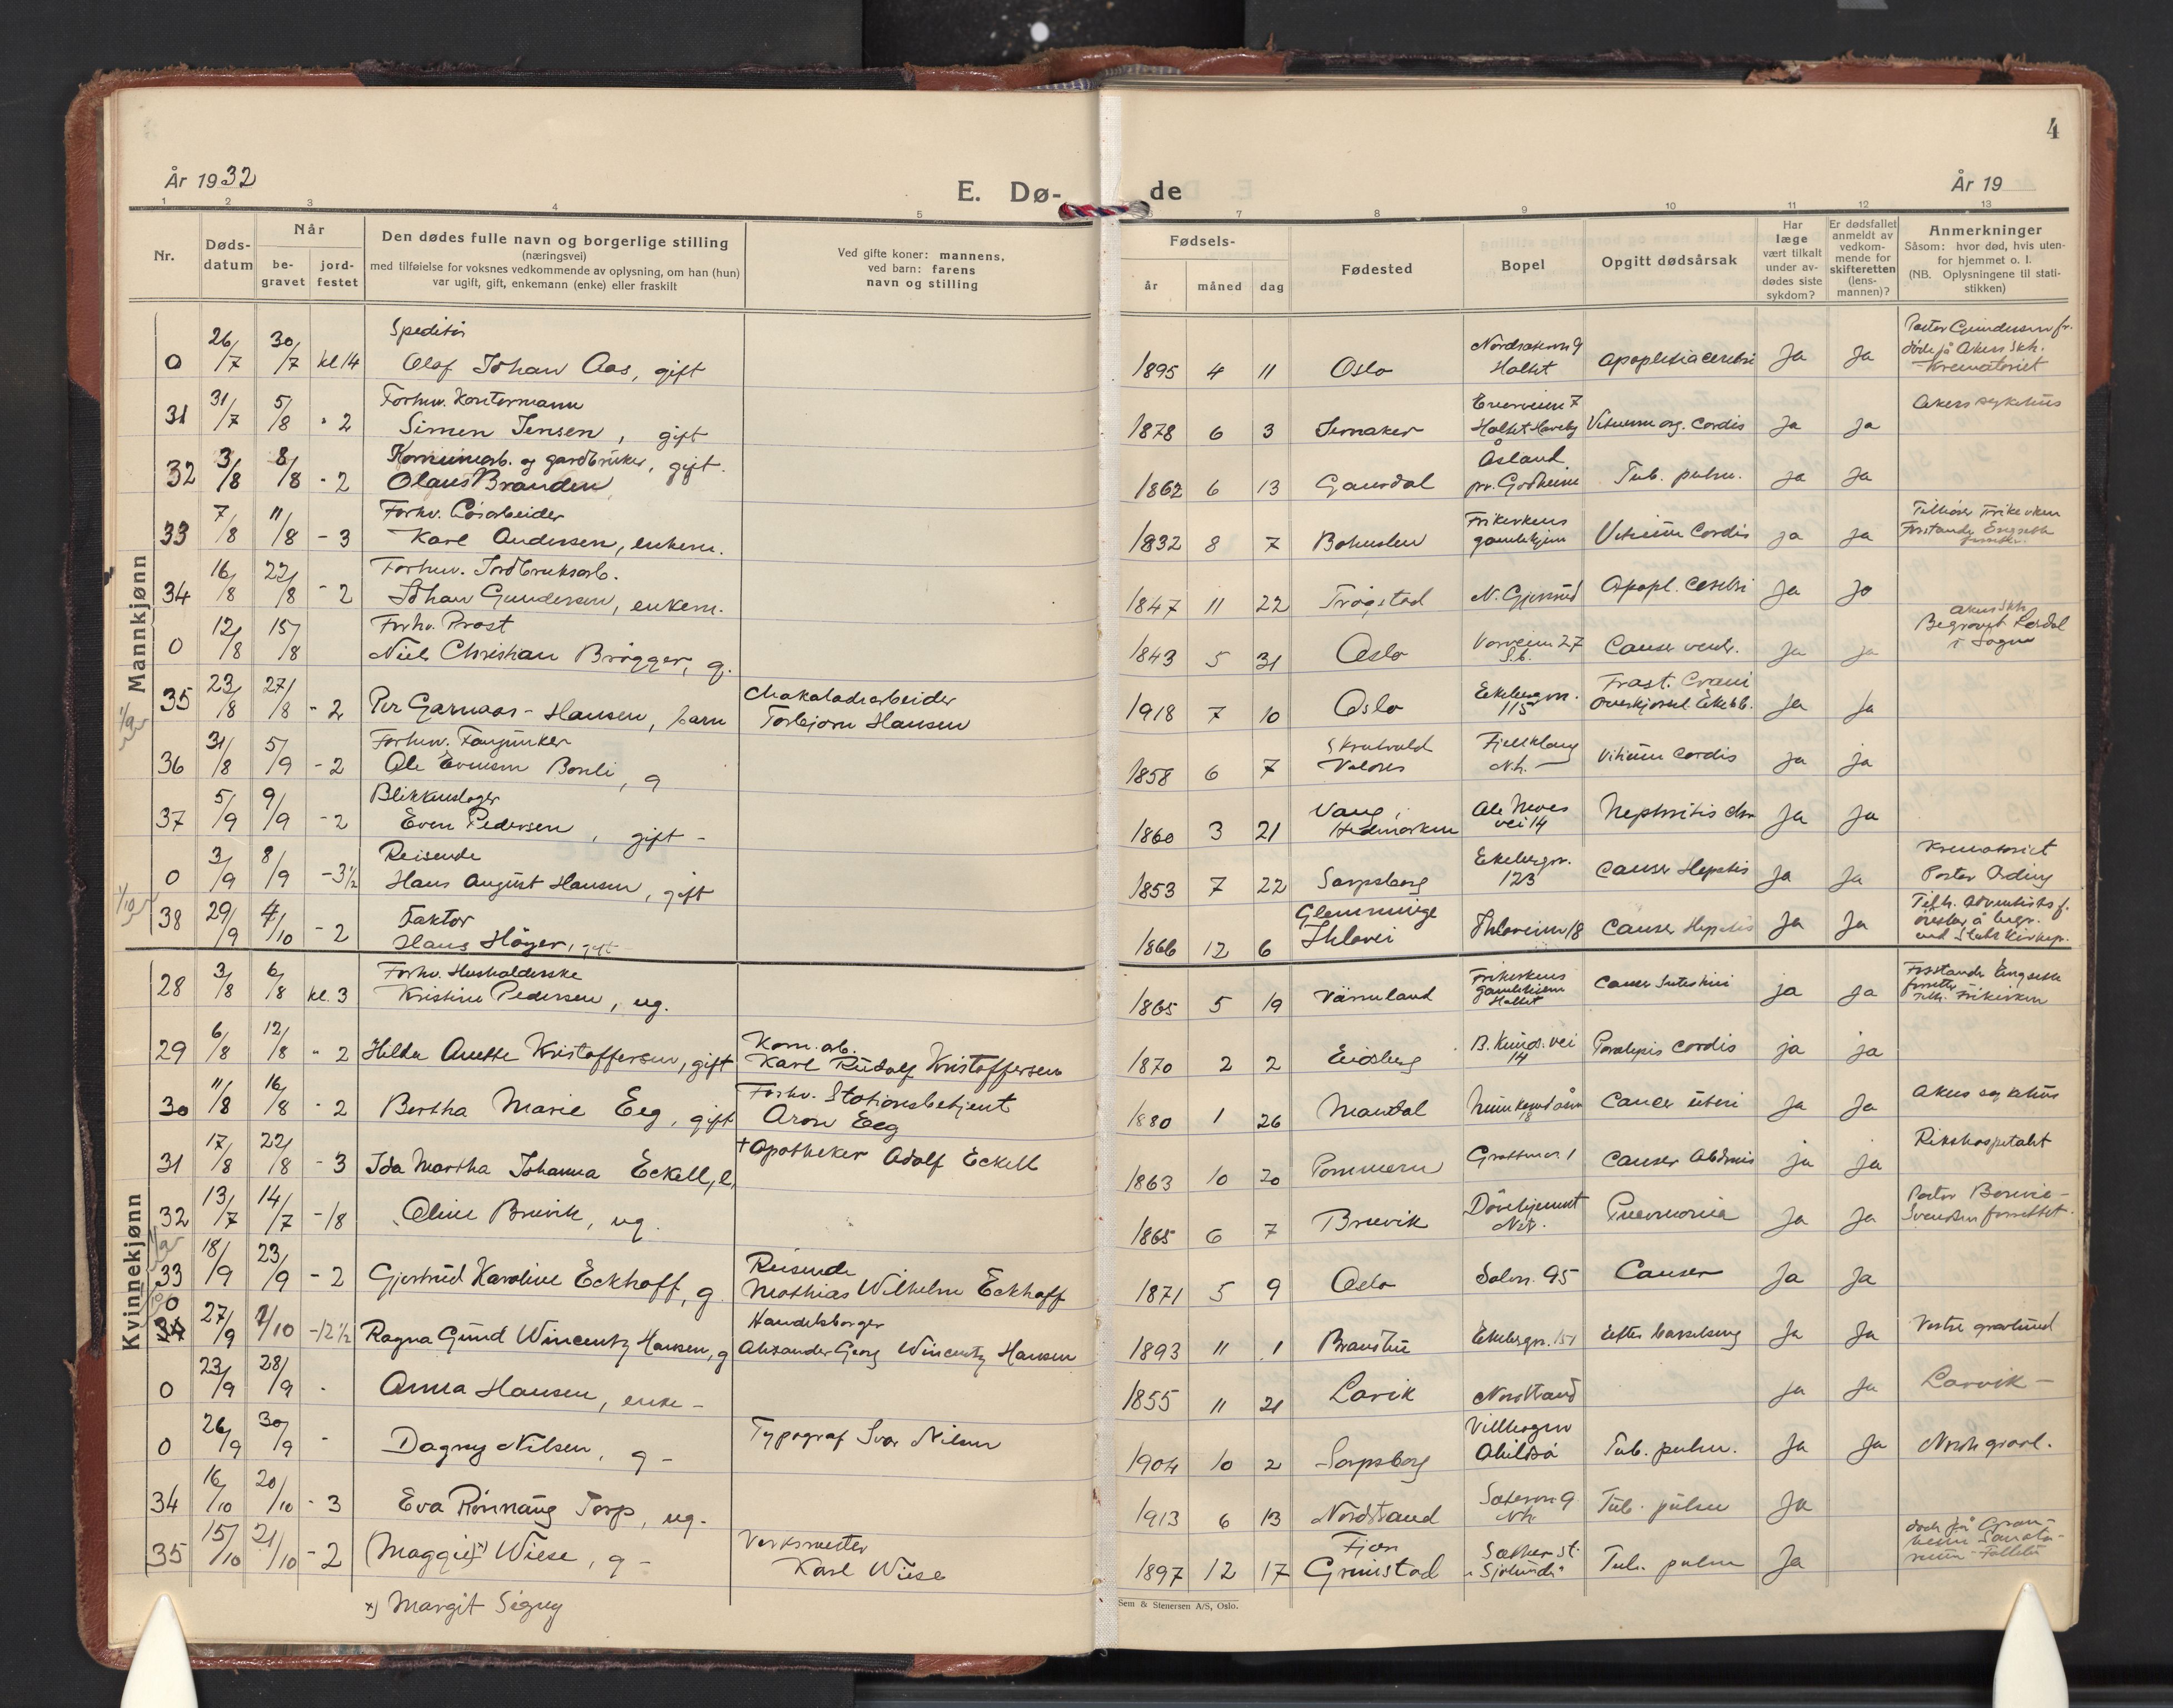 4
År 1932
E. Dø-
de
År 19
1 2 3 4 5 6 7 8 9 10 11 12 13
Nr.
Døds-
datum
Når
be-
gravet
jord-
festet
Den dødes fulle navn og borgerlige stilling
(næringsvei)
med tilføielse for voksnes vedkommende av oplysning, om han (hun)
var ugift, gift, enkemann (enke) eller fraskilt
Ved gifte koner: mannens,
ved barn: farens
navn og stilling
Fødsels-
år
måned
dag
Fødested
Bopel
Opgitt dødsårsak
Har
læge
vært tilkalt
under av-
dødes siste
sykdom?
Er dødsfallet
anmeldt av
vedkom-
mende for
skifteretten
(lens-
mannen)?
Anmerkninger
Såsom: hvor død, hvis uten-
for hjemmet o. l.
(NB. Oplysningene til stati-
stikken)
Mannkjønn
Speditør
0 26/7 30/7 kl 14 Olaf Johan Aas, gift 1895 4 11 Oslo Holtet Apoplexia cerebri Ja Ja
Krematoriet
31 31/7 5/8 - 2 Simen Jensen, gift 1878 6 3 Vitium org. cordis Ja Ja Akers sykehus
32 3/8 8/8 - 2 Olaus Branden, gift 1862 6 13 Gausdal Åsland Tub. pulm. Ja Ja
33 7/8 11/8 - 3 Karl Andersen, enkem. 1832 8 7 Bohuslen Frikirkens gamlehjem Vitium cordis Ja Ja
Forhv. Jordbruksarb.
34 16/8 22/8 - 2 Johan Gundersen, enkem. 1847 11 22 Trøgstad N. Gjersrud Apopl. cerebri Ja Ja
Forhv. Prost
0 12/8 15/8 Niels Christian Brøgger, g. 1843 5 31 Oslo Cancer ventr. Ja Ja Akers skh.
35 23/8 27/8 - 2 Per Garnaas-Hansen, barn Chokoladearbeider Torbjørn Hansen 1918 7 10 Oslo Ekebergvn. 115 Fract. Cranii Ja Ja
36 31/8 5/9 - 2 Ole Evensen Bonli, g 1858 6 7 Valdres Vitium cordis Ja Ja
Blikkenslager
37 5/9 9/9 - 2 Even Pedersen, gift - 1860 3 21 Vang, Hedmarken vei 14 Nephritis chr Ja Ja
Reisende
0 3/9 8/9 - 3½ Hans August Hansen, gift 1853 7 22 Sarpsborg Ekebergvn. 123 Cancer Hepatis Ja Ja Krematoriet
Faktor
38 29/9 4/10 - 2 Hans Høyer, gift 1866 12 6 Glemminge Cancer Hepatis Ja Ja
Kvinnekjønn
Forhv. Husholderske
28 3/8 6/8 kl. 3 Kristine Pedersen, ug. 1865 5 19 Värmland Frikirkens gamlehjem Holtet Cancer Intestini Ja Ja
29 6/8 12/8 - 2 Hilda Anette Kristoffersen, gift Kom. arb. Karl Rudolf Kristoffersen 1870 2 2 Eidsberg 14 Paralysis cordis Ja Ja
30 11/8 16/8 - 2 Bertha Marie Eeg, gift Forhv. Stationsbetjent Aron Eeg 1880 1 26 Mandal Cancer uteri Ja Ja Akers sykehus
31 17/8 22/8 - 3 Ida Martha Johanna Eckell, e. †Apotheker Adolf Eckell 1863 10 20 Pommern Ja Ja Rikshospitalet
32 13/7 14/7 - 18 Oline Brevik, ug. 1865 6 7 Brevik Døvehjemmet Pneumonia Ja Ja
33 18/9 23/9 - 2 Gjertrud Karoline Eckhoff, g Reisende Mathias Wilhelm Eckhoff 1871 5 9 Oslo Solvn. 95 Cancer Ja Ja
0 34 27/9 1/10 - 12½ Ragna Gund Wincentz Hansen, g Handelsborger Alexander Georg Wincentz Hansen 1893 11 1 Brandbu Ekebergvn. 151 Efter barselseng Ja Ja Vestre gravlund
0 23/9 28/9 - Anna Hansen, enke - 1855 11 21 Larvik Nordstrand Ja Ja Larvik -
0 26/9 30/9 - Dagny Nilsen, g - Typograf Ivar Nilsen 1904 10 2 Sarpsborg Abildsø Tub. pulm. Ja Ja Nordre gravl.
34 16/10 20/10 - 3 Eva Rönnaug Torp, ug. 1913 6 13 Nordstrand Tub. pulm Ja
35 15/10 21/10 - 2 (Maggie)x) Wiese, g - Verksmester Karl Wiese 1897 12 17 Fjære Grimstad Tub. pulm Ja
x) Margit Signy
Sem & Stenersen A/S, Oslo.